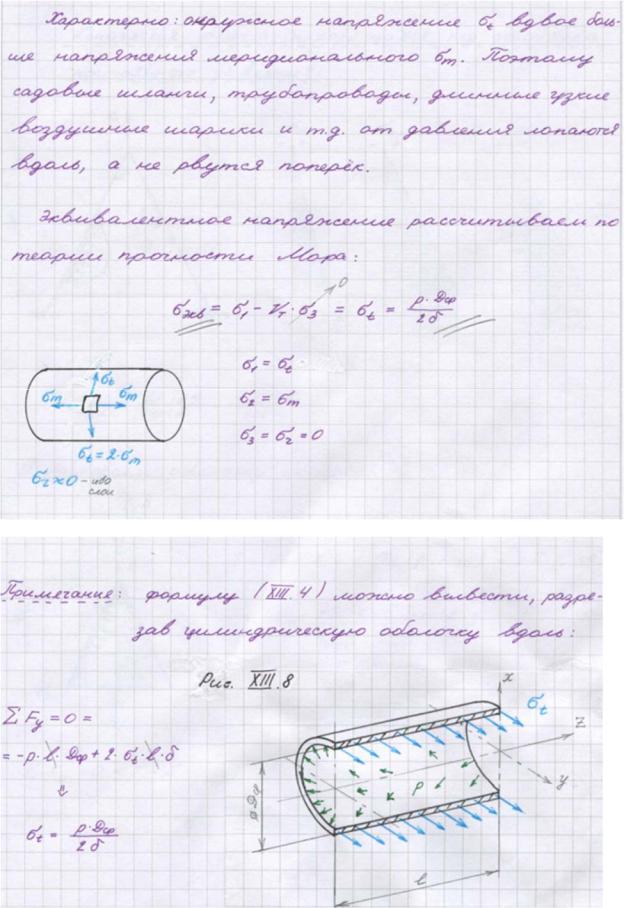 Характерно: окружное напряжение σt вдвое боль-
ше напряжения меридионального σm. Поэтому
садовые шланги, трубопроводы, длинные узкие
воздушные шарики и т.д. от давления лопаются
вдоль, а не рвутся поперёк.
Эквивалентное напряжение рассчитываем по
теории прочности Мора:
σэкв = σ1 - νт·σ3 = σt = p·Dср / 2δ
0
σ1 = σt
σ2 = σm
σ3 = σr = 0
σt
σm σm
σt = 2·σm
σr ≈ 0 -
слои
Примечание: формулу (XIII.4) можно вывести, разре-
зав цилиндрическую оболочку вдоль:
Рис. XIII.8
ΣFy = 0 =
= -p·l·Dср + 2·σt·l·δ
σt = p·Dср / 2δ
x
σt
z
y
p
øDср
l